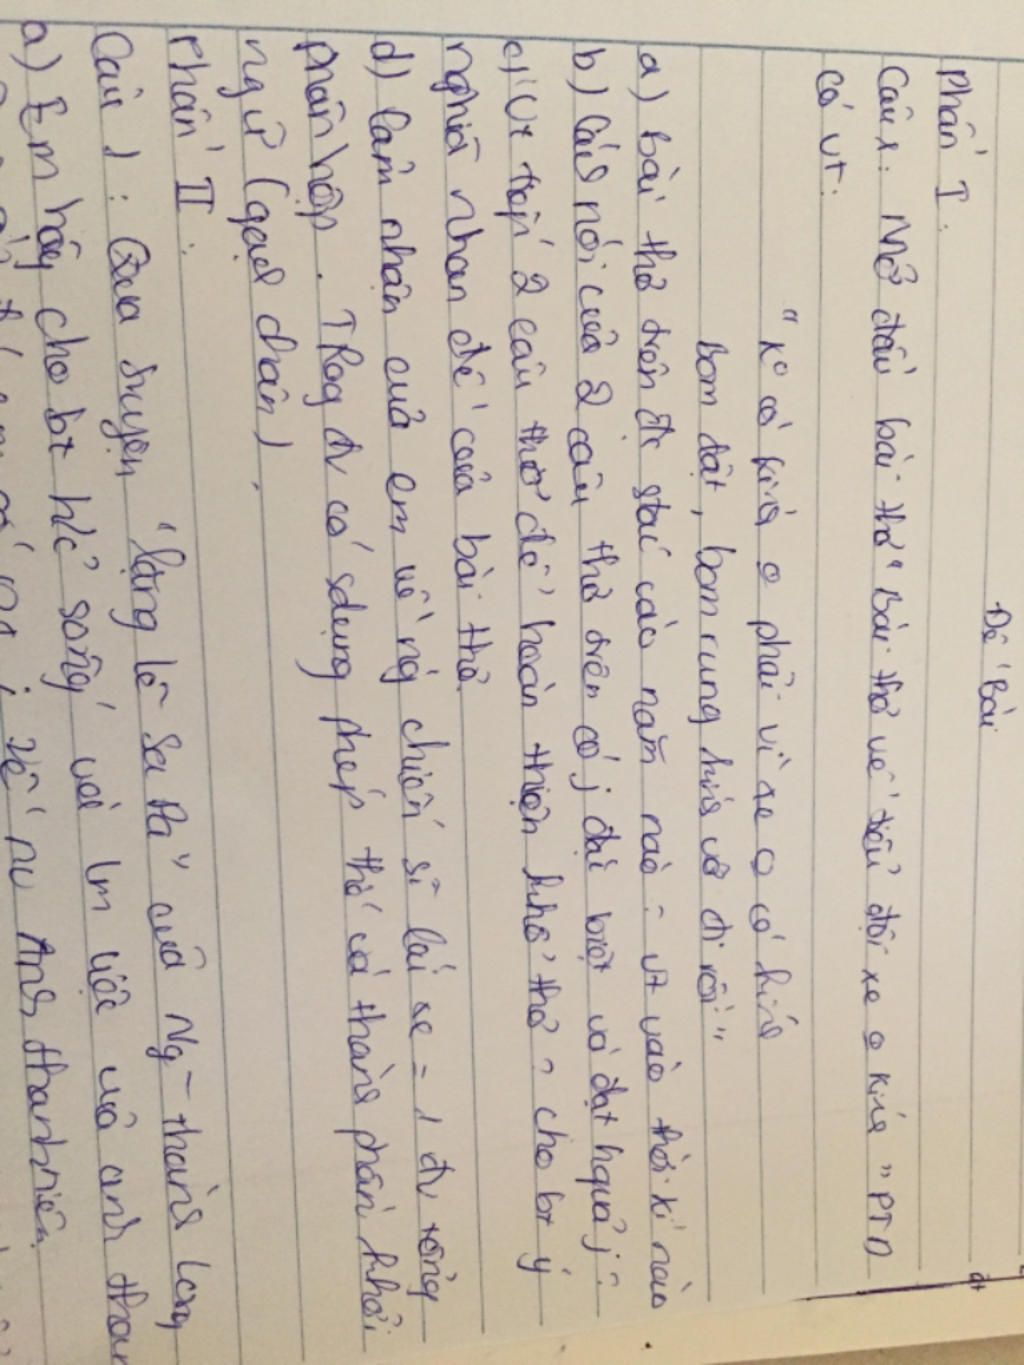 Đề bài
Phần I.
Câu 1. Mở đầu bài thơ "Bài thơ về tiểu đội xe o kính" PTD
có vt:
"Ko có kính o phải vì xe o có kính
Bom dật, bom rung kính vỡ đi rồi"
a) bài thơ trên đc stác vào năm nào? vt vào thời kì nào
b) Cách nói của 2 câu thơ trên có j đặc biệt và đạt hquả j?
c) Vt tiếp 2 câu thơ để hoàn thiện khổ thơ? cho bt ý
nghĩa nhan đề của bài thơ.
d) Cảm nhận của em về ng chiến sĩ lái xe = 1 đv tổng
phân hợp. Trog đv có sdụng phép thế và thành phần khởi
ngữ (gạch chân).
Phần II:
Câu 1: Qua truyện "Lặng lẽ Sa Pa" của Ng~ thành Long
a) Em hãy cho bt h/c sống và lm việc của anh thanh niên